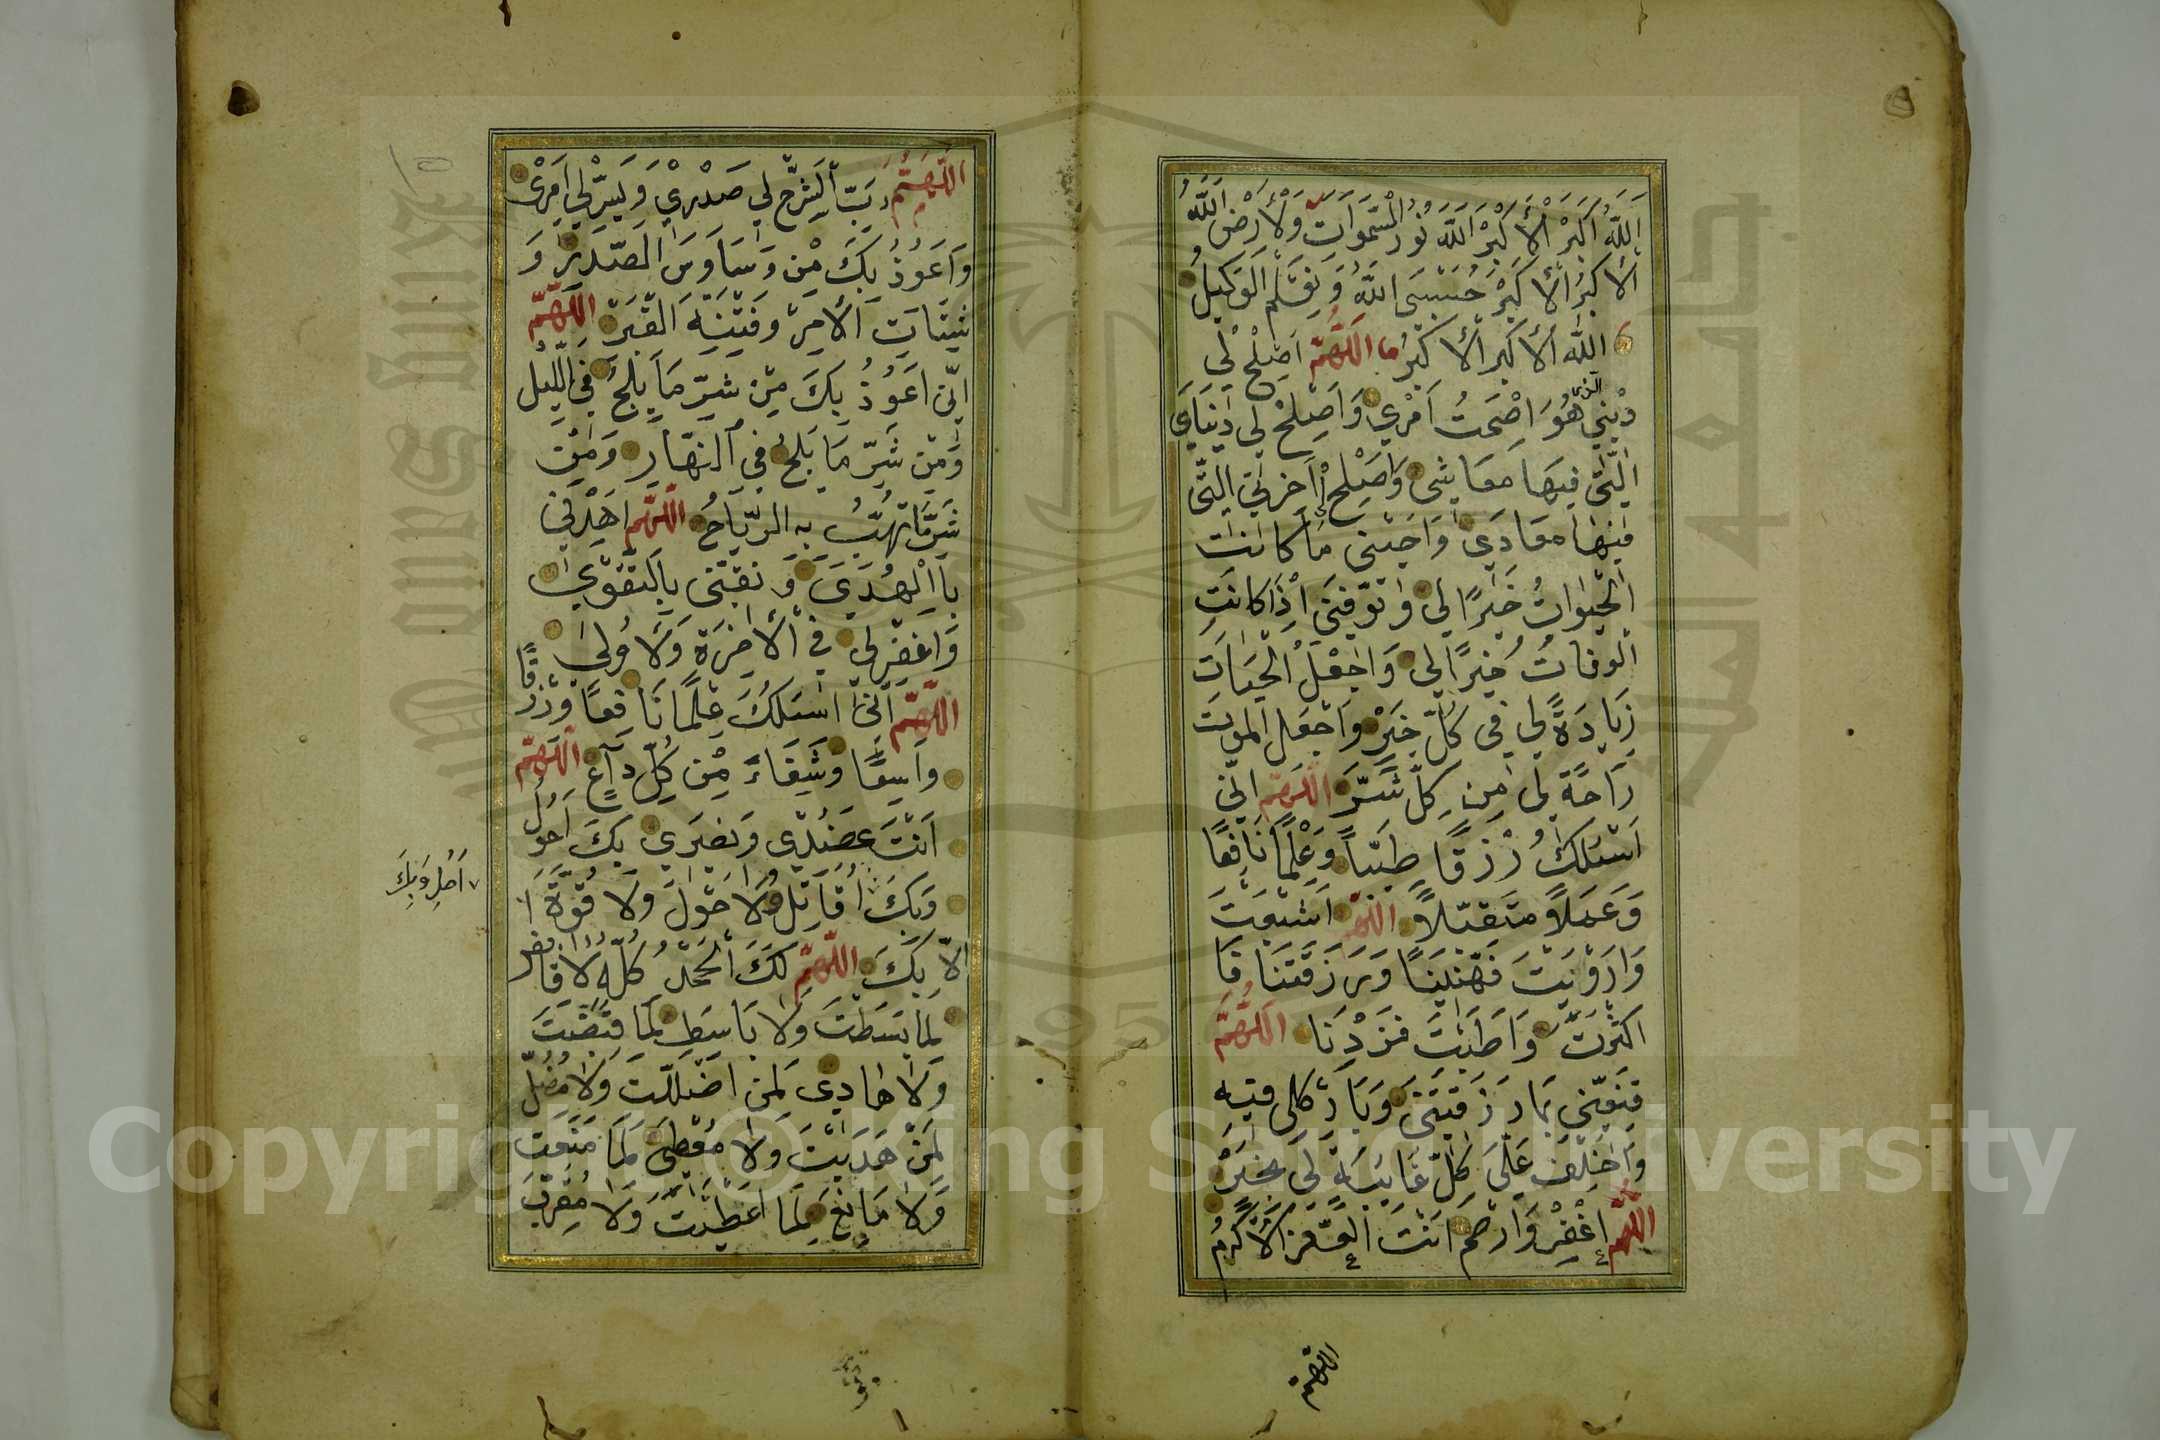 اَللّٰهُ اَكْبَرْ اْلأَ كْبَرْ اَللّٰهَ نُورُ السَّمَوَاتِ وَلْأَرْضِ اَللّٰهُ
اْلأَ كْبَرْ اْلأَ كْبَرْ حَسْبِىَ اللّٰهُ وَ نِعْمَ الْوَكِيلُ
اللّٰه اْلأَ كْبَر اْلأَ كْبَرُ ما اَللّٰهُمَّ اَصْلِحْ لْي
دْيْنِي الذى هُوَ اِصْمَتُ اَمْرِي وَ اَصْلِحْ لِي دُنْيَايَ
الَّتَى فِيهَا مَعَاشِى وَ اَصْلِحْ اٰخِرَتِي الَّتَى
فِيْهَا مَعَادِي وَ اَحْيِنى مَا كَانَتْ
الْحَيٰواتُ خَيْرًا لِى وَ تَوَفَّنِى اِذَا كَانَتِ
الْوَفَاتُ خَيْرًا لِى وَ اجْعَلْ الْحَيَاتَ
زِيَادَةً لِي فِى كُلِّ خَيْرْ وَ اجْعَلِ الْمَوْتَ
رَاحَةً لِى مِنْ كِلِّ شَرَّ اَللّٰهُمَّ اِنِّي
اَسْئَلُكَ رِزْقًا طَيِّبًا وَ عِلْمًا نَافِعًا
وَ عَمَلاً مُتَقَبَّلاً اللّٰهُمَّ اَشْبَعْتَ
وَ اَرْوَيْتَ فَهَنِّينَا وَ رَزَقْتَنَا فَا
اَكْثَرْتَ وَ اَطَبْتَ فَزِدْنَا اَللّٰهُمَّ
قَنِّعْنِي بِمَا رَزَقْتَنِى وَ بَارِكْ لِى فِيْهِ
وَ اخْلِفْ عَلَىَ كِلِّ غَايِبَةٍ لِي بِخَيْرْ
اللّٰهُمَّ اِغْفِرْ وَ ارْحَمْ اَنْتَ اْلاَعَزُّ اْلأَكْرَمُ
اللّٰهُمَّ
اَللّٰهُمَّ رَبِّ اَشْرَحْ لِي صَدْرِيْ وَ يَسِّرْ لِي اَمْرِى
وَ اَعُوذُ بِكَ مِنْ وَسَاوِسَ الصَّدْرِ وَ
شَتَاتِ اَلأَمِرْ وَ فِتْنَةِ الْقَبْرْ اَللّٰهُمَّ
اِنّى اَعُوذُ بِكَ مِنْ شَرِّ مَا يَلِجُ فِى اللَّيْلِ
وَ مِنْ شَرِّ مَا يَلِجُ فِي النَّهَارِ وَ مِنْ
شَرِّ مَا تَهُبُّ بِهِ الرِّيَاحُ اَللّٰهُمَّ اهْدِنِي
بِا الْهُدَيَ وَ نَقِّنِى بِالتَّقْوَي
وَ اغْفِرْلِي فِي اْلأَخِرَةِ وَلْأُولَى
اَللّٰهُمَّ اِنّى اَسْئَلُكَ عِلْمًا نَافِعًا وَ رِزْقًا
وَاسِعًا وَ شِفَاءً مِنْ كِلِّ دَآءٍ اَللّٰهُمَّ
اَنْتَ عَضُدِى وَ نَصِيرِي بِكَ اَحُولُ
وَ بِكَ اُقَاتِلُ وَ لَا حَوْلَ وَ لا قُوَّةَ اِ
اِلاَّ بِكَ اللّٰهُمَّ لَكَ الْحَمْدُ كُلُّهُ لاَ قَابِضَ
لِمَا بَسَطْتَ وَ لَا بَاسِطَ لِمَا قَبَضْتَ
وَ لَا هَادِيَ لِمَنْ اَضْلَلْتَ وَ لَا مُضِلَّ
لِمَنْ هَدَيْتَ وَ لَا مُعْطِىَ لِمَا مَنَعْتَ
وَ لَا مَانِعَ لِمَا اَعْطَيْتَ وَ لَا مُقَرِّبَ
اَصُلِ وَ بِكَ
Copyright © King Saud University
King Saud University
جامعة الملك سعود
1957